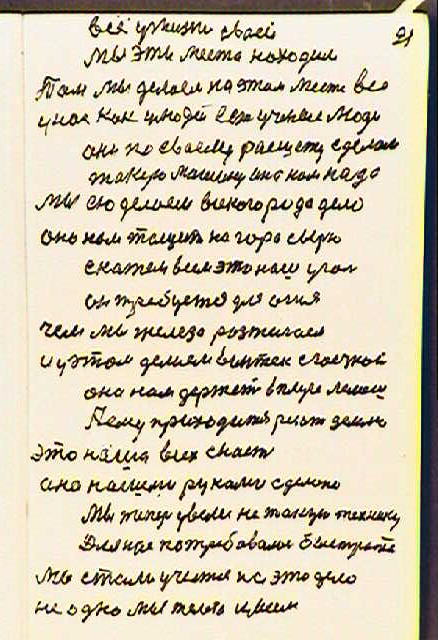 21
все у жизни своей
мы эти места находим
Там мы делаем на этом месте все
у нас как людей есть ученые люди
они по своему расщету сделали
такую машину она нам надо
мы ею делаем всякого рода дело
она нам тащить на гора сырю
скажем всем это наш угол
он требуется для огня
чем мы железо розжигаем
и у этом делаем винтек с гаечкой
она нам держеть в плуге лемеш
Лему приходится рвать землю
это наша всех снасть
она нашими руками сделано
мы теперь увели не такую технику
Для нас потребовалась быстрота
мы стали учится на это дело
не одно мы тело имеем